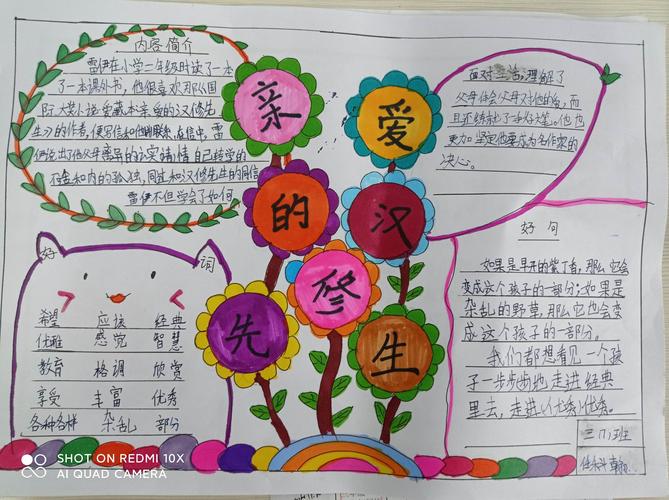 亲爱的汉修先生
内容简介
雷伊在小学二年级时读了一本
了一本课外书，他很喜欢那从国
际大奖小说爱藏本亲爱的汉修先
生》的作者，便写信和他
们说出了他父母离异的
的孤独，同过和汉修先生的同信
雷伊不但学会了如何
面对生活，理解了
父母体会父母对他的爱，而
且还练就了
更加坚定他要成为名作家的
决心。
好词
希望 应该 经典
优雅 感觉 智慧
教育 格调 欣赏
享受 丰富 优秀
各种各样 杂乱 部分
好句
如果是早开的紫丁香，那么它会
变成这个孩子的一部分；如果是
杂乱的野草，那么它也会变
成这个孩子的一部分。
我们都想看见一个孩
子一步步地走进经典
里去，走进优秀。
三(1)班
SHOT ON REDMI 10X
AI QUAD CAMERA